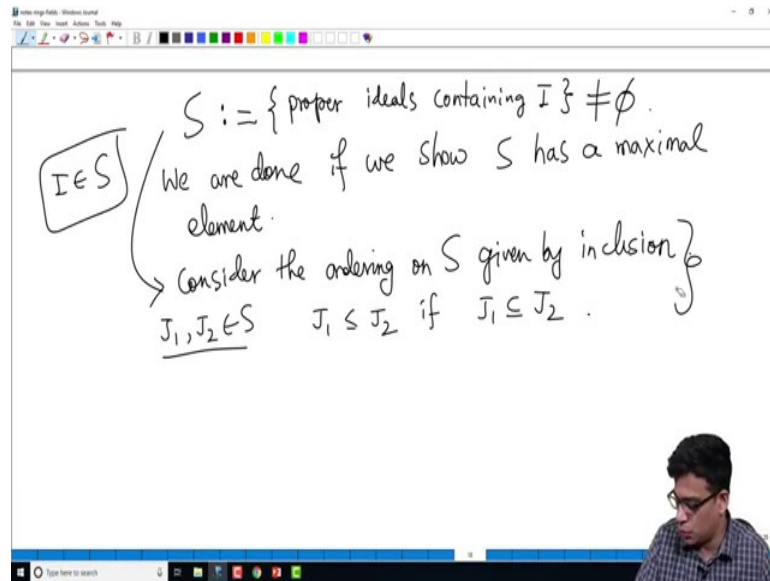 notes-rings-fields - Windows Journal
File Edit View Insert Actions Tools Help
S := { proper ideals containing I } ≠ ∅.
I ∈ S
We are done if we show S has a maximal
element.
Consider the ordering on S given by inclusion }
J₁, J₂ ∈ S J₁ ≤ J₂ if J₁ ⊆ J₂ .
Type here to search